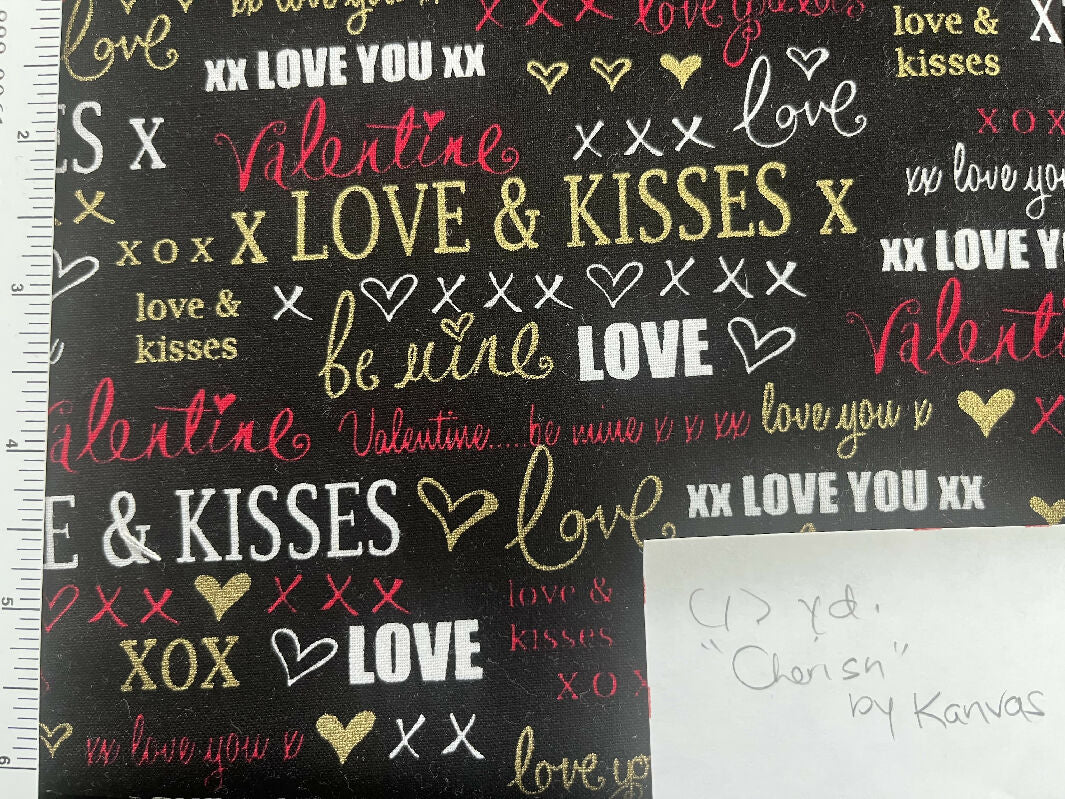 love xx love you x x x x love you
love &
kisses X
xx LOVE YOU xx
love
ES X Valentine x x x
X O X
xx love you
x X LOVE & KISSES X
X O X
xx LOVE Y
love &
kisses
x x x x x x x
be mine LOVE
Valent
alentine Valentine....be mine x x xx love you x
x
E & KISSES love xx LOVE YOU xx
x x x x x
love &
kisses
XOX LOVE
X O X
xx love you x x x
love yo
(1) yd.
"Cherish"
by Kanvas
2
3
4
5
6